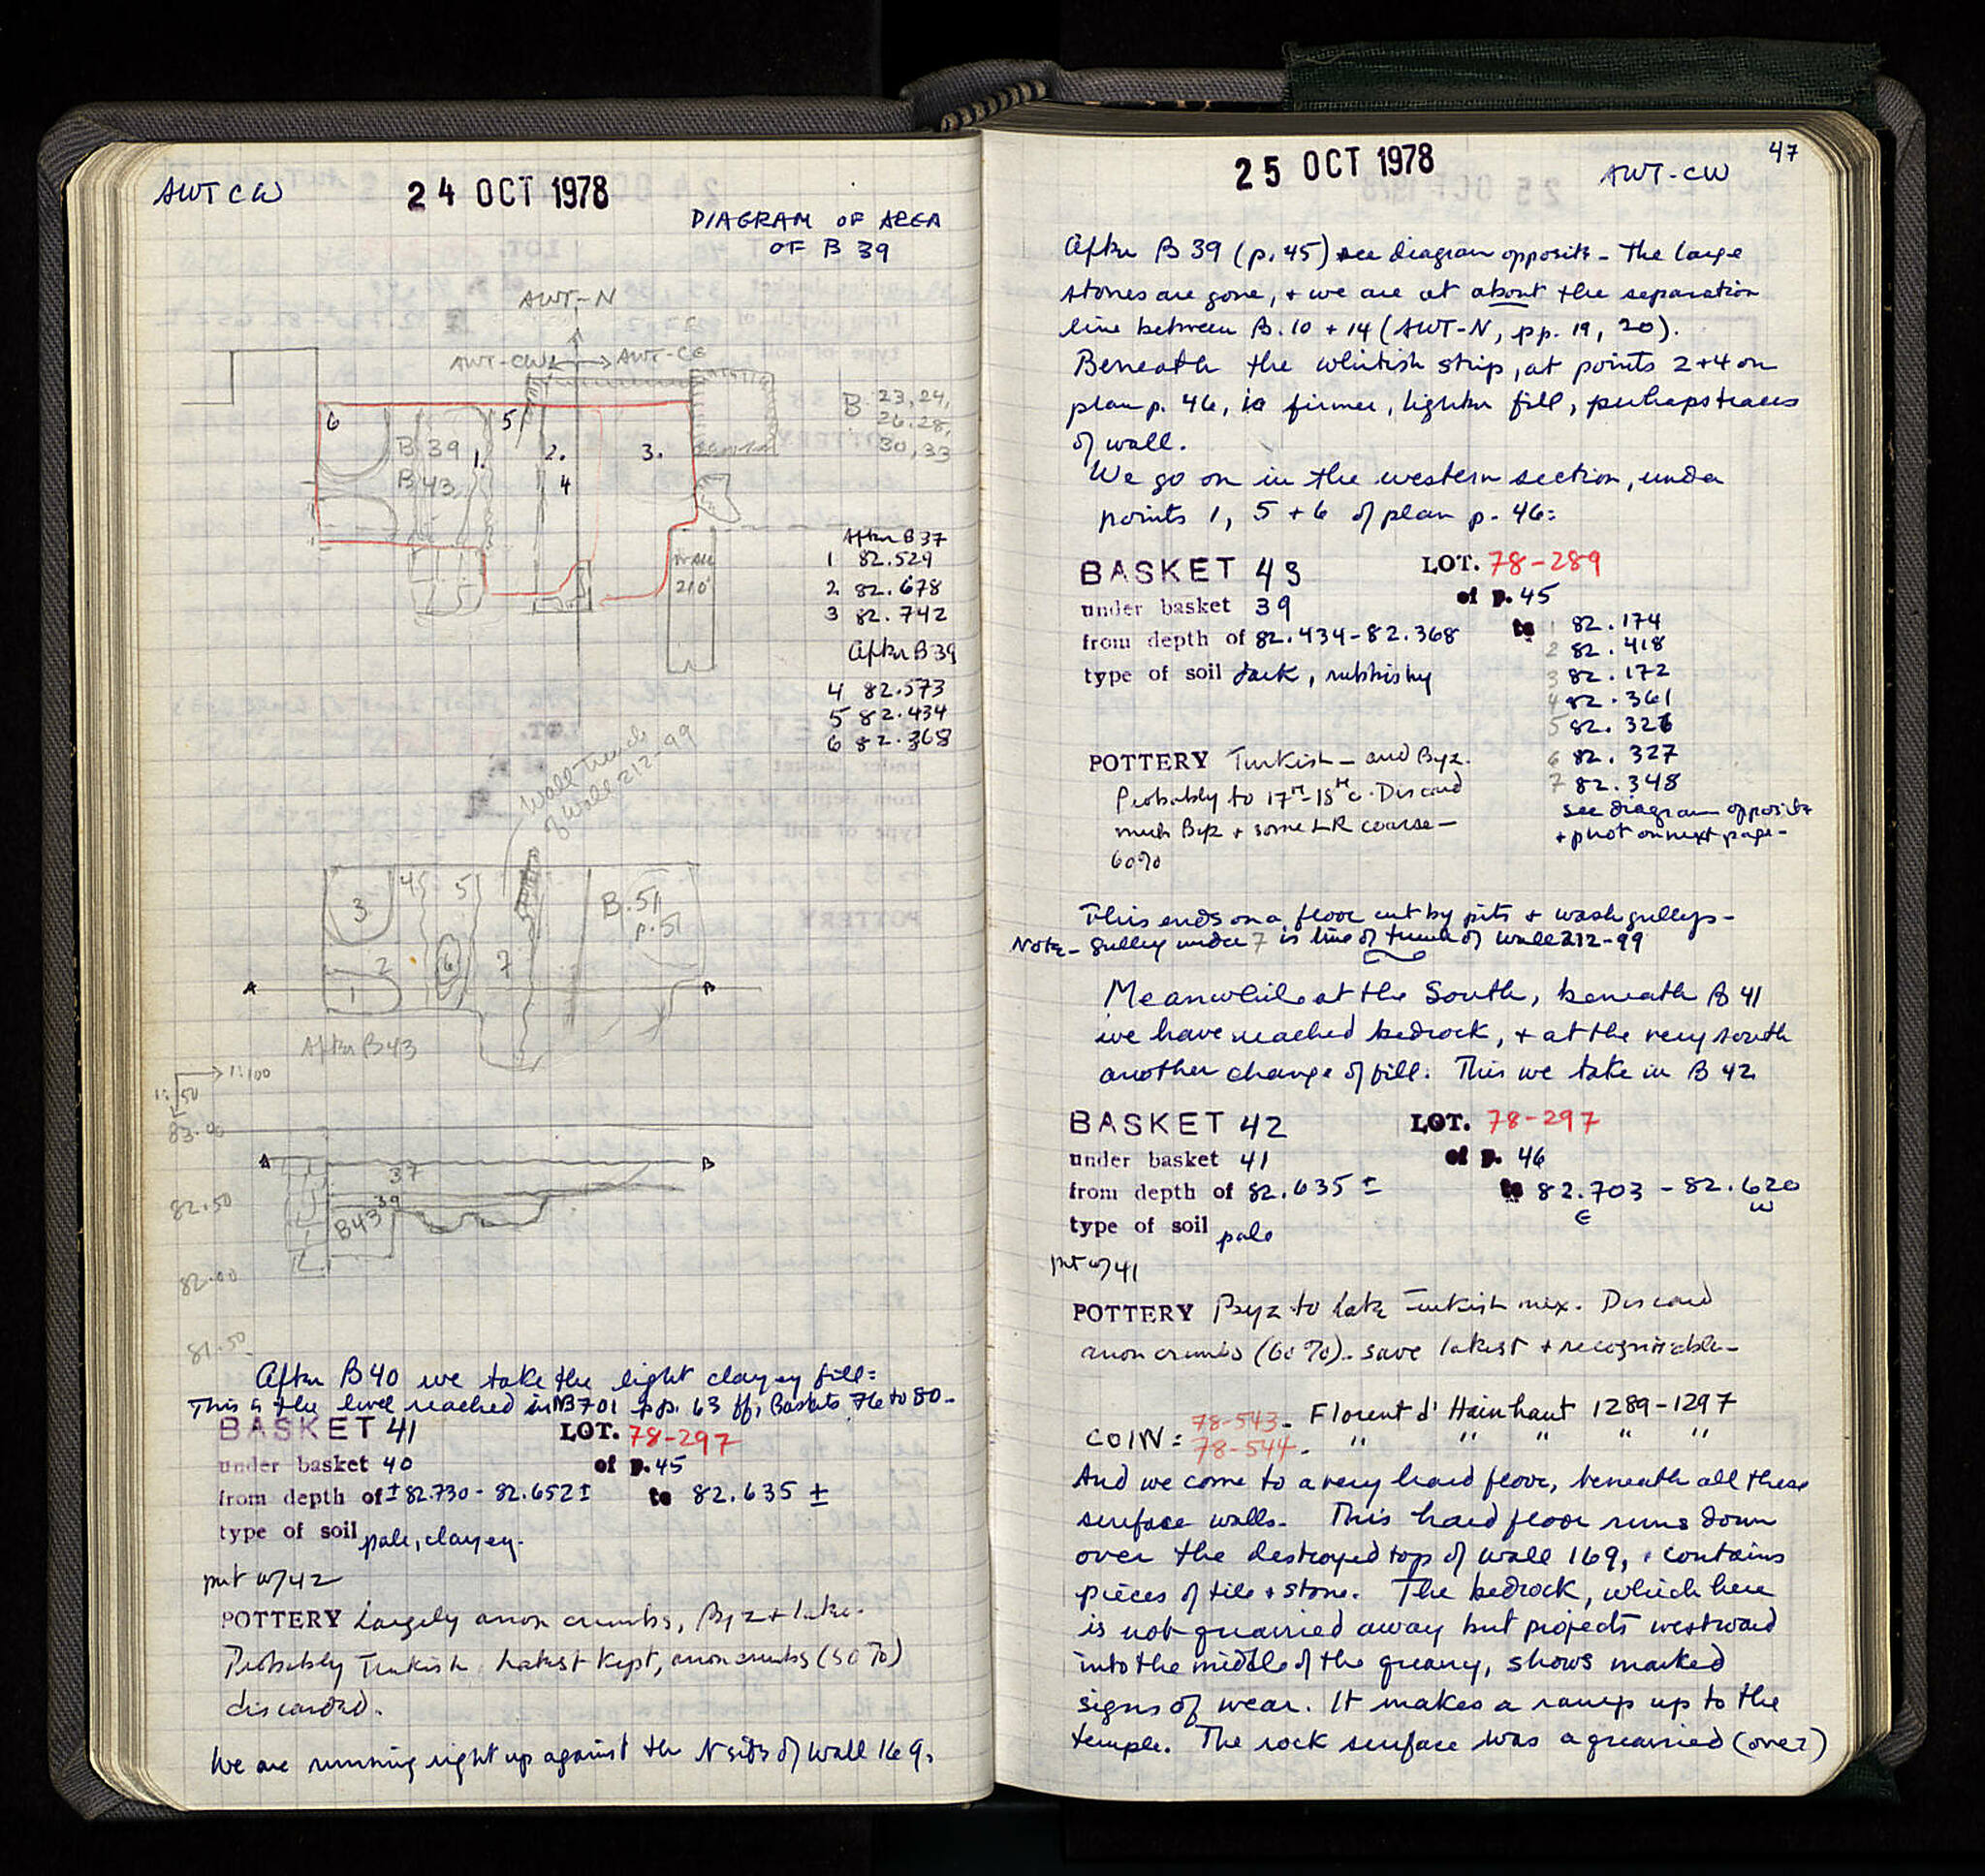 AWT CW
24 OCT 1978
DIAGRAM OF AREA
OF B 39
AWT-N
AWT-CW AWT-CE
B 23, 24,
26, 28,
30, 33
6
5
B 39 1. 2. 3.
B 43 4
WALL
210
After B 37
1 82.529
2 82.678
3 82.742
After B 39
4 82.573
5 82.434
6 82.368
Wall trench
of Wall 212-99
3 4 5 B.51
p.51
2 6 7
1
A B
After B43
1:100
1:50
83.00
A B
37
39
82.50
B43
82.00
81.50
After B40 we take the light clayey fill:
This is the level reached in NB701 pp. 63 ff, Baskets 76 to 80-
BASKET 41 LOT. 78-297
under basket 40 of p. 45
from depth of ±82.730 - 82.652± to 82.635 ±
type of soil pale, clayey.
put w/42
POTTERY Largely anon crumbs, Byz + later.
Probably Turkish. Latest kept, anon crumbs (50%)
discarded.
We are running right up against the N side of wall 169.
47
25 OCT 1978
AWT-CW
After B 39 (p. 45) see diagram opposite - The large
stones are gone, + we are at about the separation
line between B. 10 + 14 (AWT-N, pp. 19, 20).
Beneath the whitish strip, at points 2+4 on
plan p. 46, is firmer, lighter fill, perhaps traces
of wall.
We go on in the western section, under
points 1, 5 + 6 of plan p. 46:
BASKET 43 LOT. 78-289
under basket 39 of p. 45
from depth of 82.434-82.368 to 1 82.174
2 82.418
type of soil dark, rubbishy 3 82.172
4 82.361
5 82.326
POTTERY Turkish - and Byz. 6 82.327
Probably to 17th-18th c. Discard 7 82.348
much Byz + some LR coarse - see diagram opposite
60% + phot on next page -
This ends on a floor cut by pits + wash gulleys -
Note - Gulley under 7 is line of trench of wall 212-99
Meanwhile at the South, beneath B 41
we have reached bedrock, + at the very south
another change of fill. This we take in B 42
BASKET 42 LOT. 78-297
under basket 41 of p. 46
from depth of 82.635 ± to 82.703 - 82.620
E W
type of soil pale
put w/41
POTTERY Byz to late Turkish mix. Discard
anon crumbs (60%). save latest + recognizable -
COIN: 78-543 - Florent d' Hainhaut 1289-1297
78-544 - " " " " "
And we come to a very hard floor, beneath all these
surface walls. This hard floor runs down
over the destroyed top of wall 169, contains
pieces of tile + stone. The bedrock, which here
is not quarried away but projects westward
into the middle of the quarry, shows marked
signs of wear. It makes a ramp up to the
temple. The rock surface was a quarried (over)